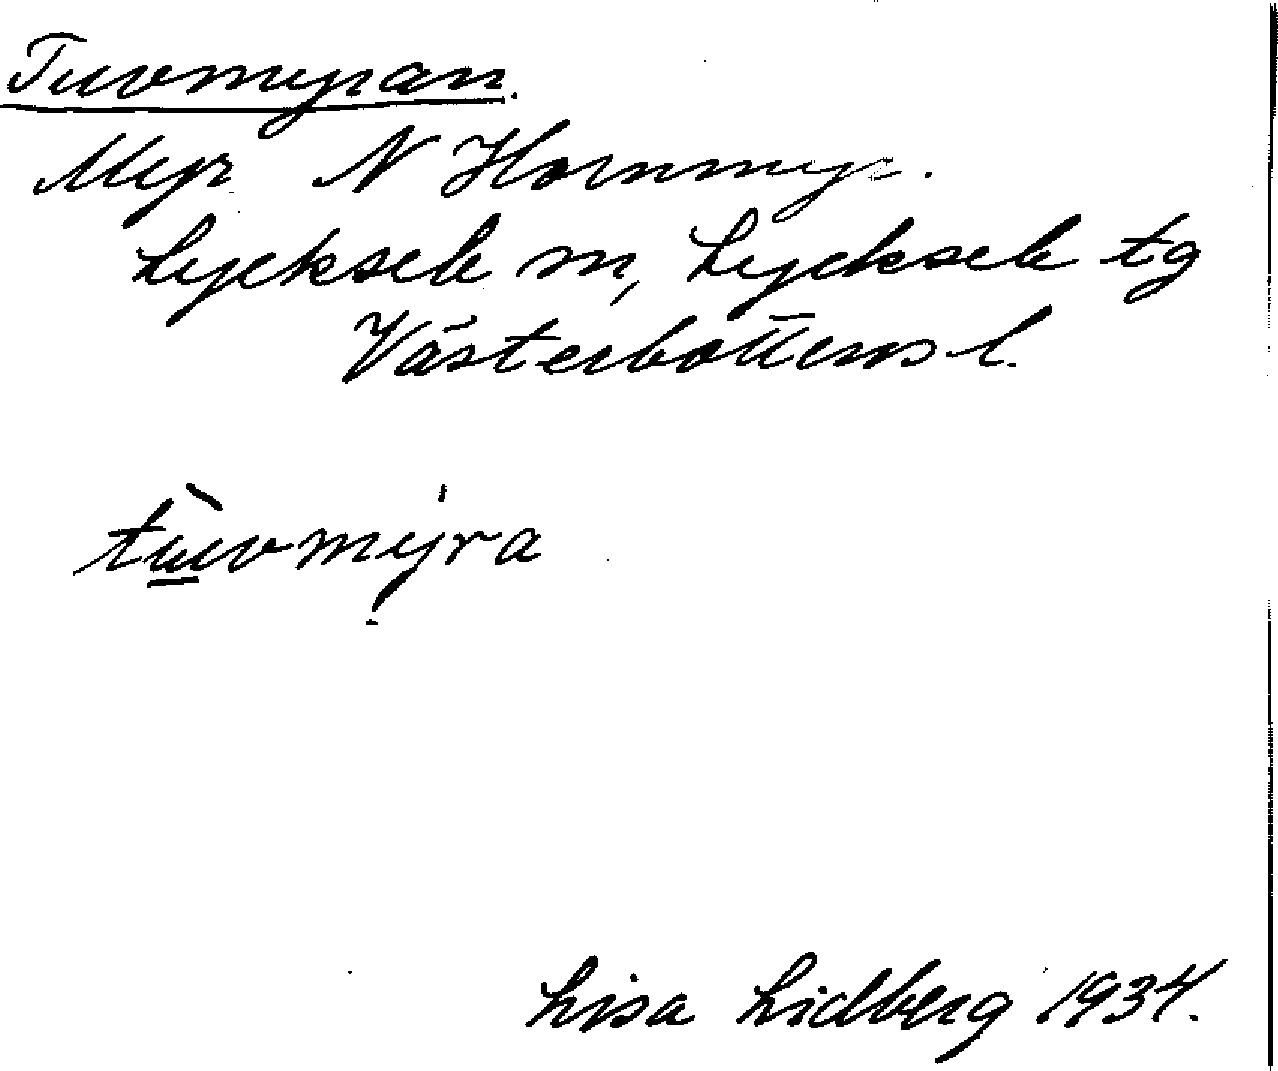 Tuvmyran.
Myr N Hornmyr.
Lycksele m, Lycksele tg
Västerbottens l.
tu̲vmyra
Lisa Lidberg 1934.